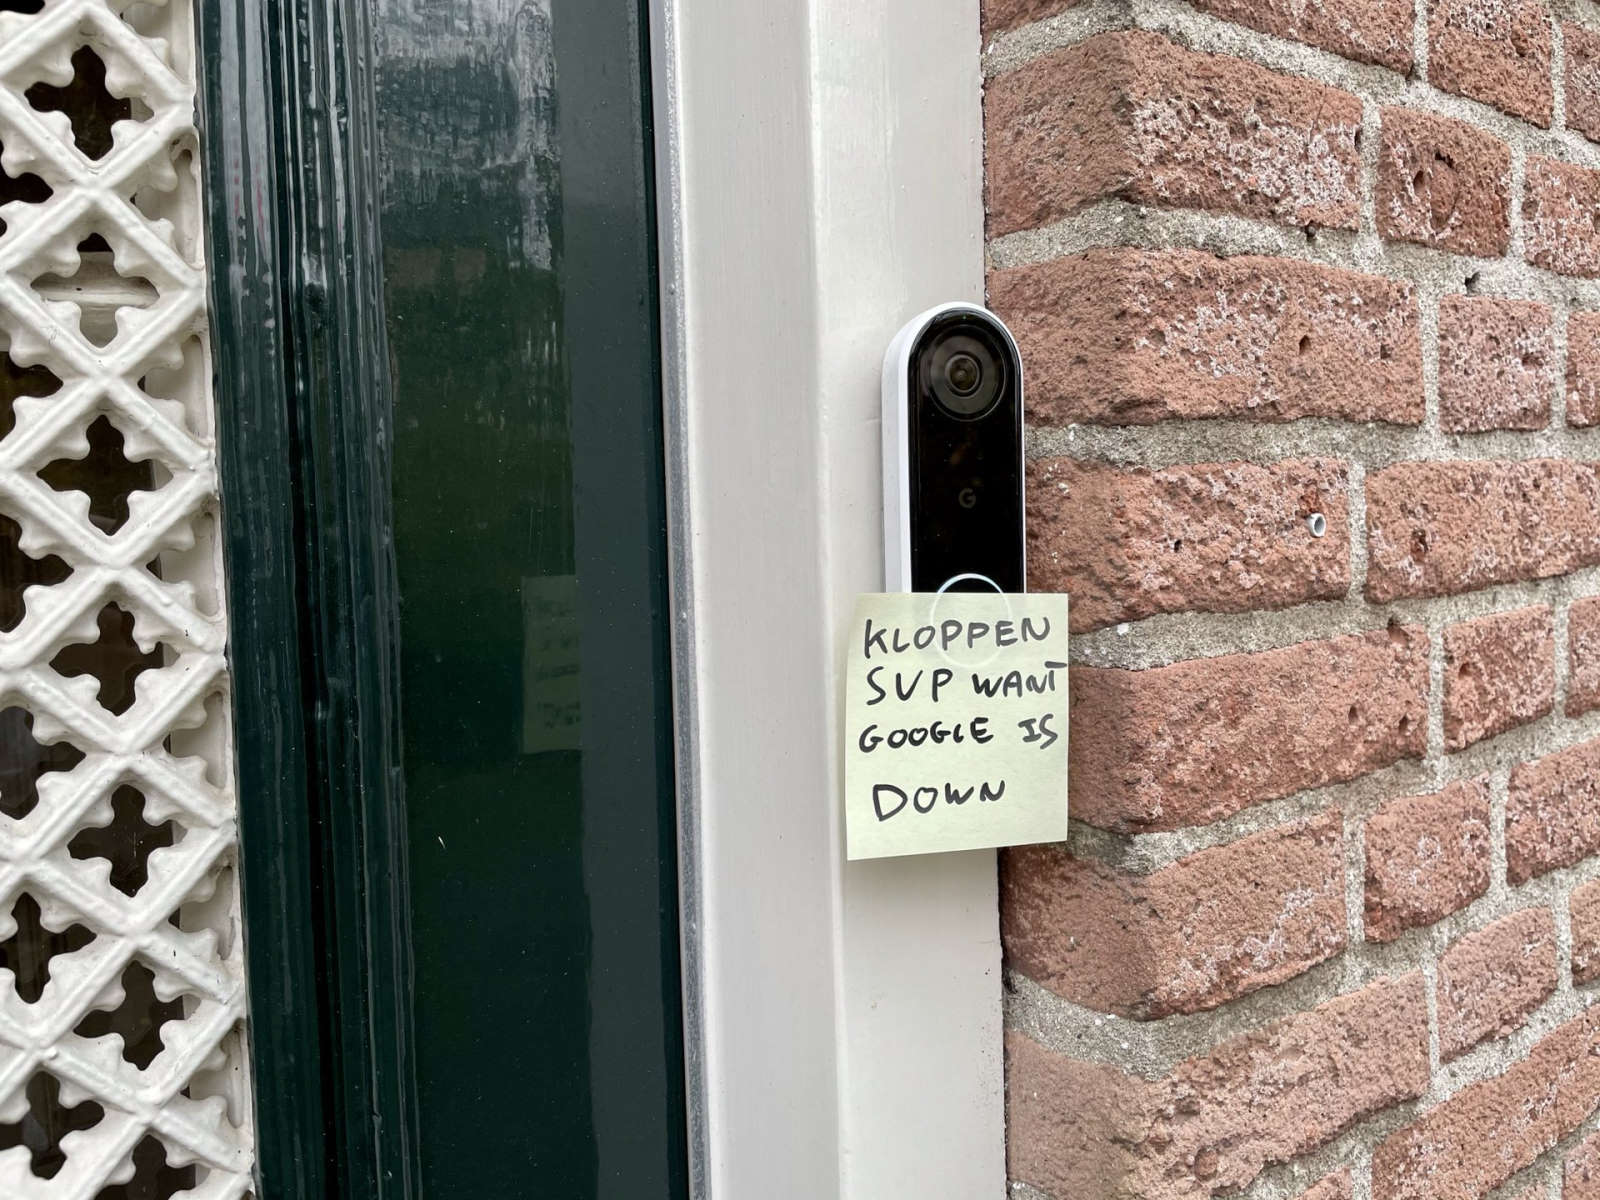 G
KLOPPEN
SVP WANT
GOOGLE IS
DOWN